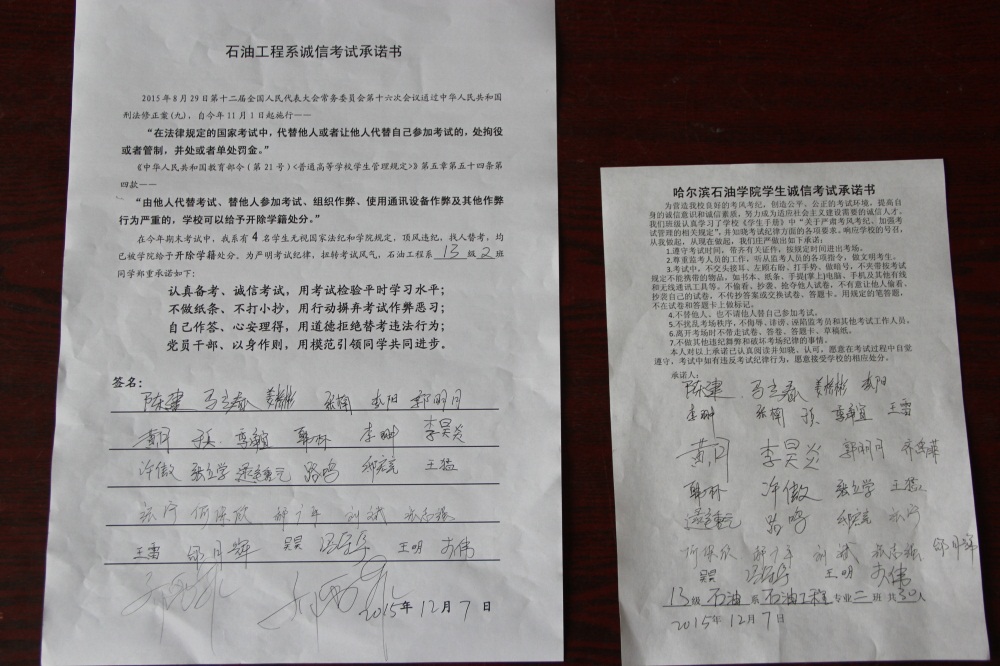 石油工程系诚信考试承诺书
2015年8月29日第十二届全国人民代表大会常务委员会第十六次会议通过中华人民共和国
刑法修正案(九),自今年11月1日起施行——
“在法律规定的国家考试中,代替他人或者让他人代替自己参加考试的,处拘役
或者管制,并处或者单处罚金。”
《中华人民共和国教育部令(第21号)<普通高等学校学生管理规定>》第五章第五十四条第
四款——
“由他人代替考试、替他人参加考试、组织作弊、使用通讯设备作弊及其他作弊
行为严重的,学校可以给予开除学籍处分。”
在今年期末考试中,我系有4名学生无视国家法纪和学院规定,顶风违纪,找人替考,均
已被学院给予开除学籍处分。为严明考试纪律,扭转考试风气,石油工程系13级2班
同学郑重承诺如下:
认真备考、诚信考试,用考试检验平时学习水平;
不做纸条、不打小抄,用行动摒弃考试作弊恶习;
自己作答、心安理得,用道德拒绝替考违法行为;
党员干部、以身作则,用模范引领同学共同进步。
签名:
陈建 张楠 郭明月
韩林 李珊 李昊炎
许傲 张立学 路鸣 邱宏亮 王猛
张宁 何保欣 刘斌
王雷 邰月辉 王明
2015年12月7日
哈尔滨石油学院学生诚信考试承诺书
为营造我校良好的考风考纪,创造公平、公正的考试环境,提高自
身的诚信意识和诚信素质,努力成为适应社会主义建设需要的诚信人才,
我们班级认真学习了学校《学生手册》中“关于严肃考风考纪、加强考
试管理的相关规定”,并知晓考试纪律方面的各项要求。响应学校的号召,
从我做起,从现在做起,我们庄严做出如下承诺:
1.遵守考试时间,带齐有关证件,按规定时间进出考场。
2.尊重监考人员的工作,听从监考人员的各项指令,做文明考生。
3.考试中,不交头接耳、左顾右盼、打手势、做暗号,不夹带按考试
规定不能携带的物品,如书本、纸条、手提(掌上)电脑、手机及其他有线
和无线通讯工具等。不偷看、抄袭、抢夺他人试卷,不有意让他人偷看、
抄袭自己的试卷,不传抄答案或交换试卷、答题卡。用规定的笔答题,
不在试卷和答题卡上做标记。
4.不替他人、也不请他人替自己参加考试。
5.不扰乱考场秩序,不侮辱、诽谤、诬陷监考员和其他考试工作人员。
6.离开考场时不带走试卷、答卷、答题卡、草稿纸。
7.不做其他违纪舞弊和破坏考场纪律的事情。
本人对以上承诺已认真阅读并知晓、认可,愿意在考试过程中自觉
遵守,考试中如有违反考试纪律行为,愿意接受学校的相应处分。
承诺人:
陈建
李珊 张楠 王雷
李昊炎 郭明月
韩林 许傲 张立学 王猛
路鸣 邱宏亮 张宁
何保欣 刘斌 邰月辉
王明
13级 石油 系 石油工程 专业 二 班 共30人
2015年12月7日